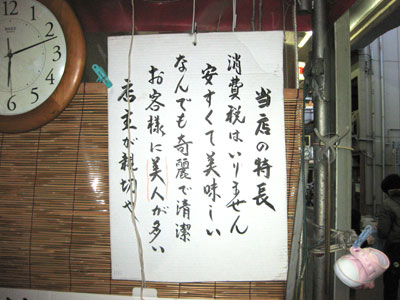 当店の特長
消費税はいりません
安すくて美味しい
なんでも奇麗で清潔
お客様に美人が多い
店主が親切や